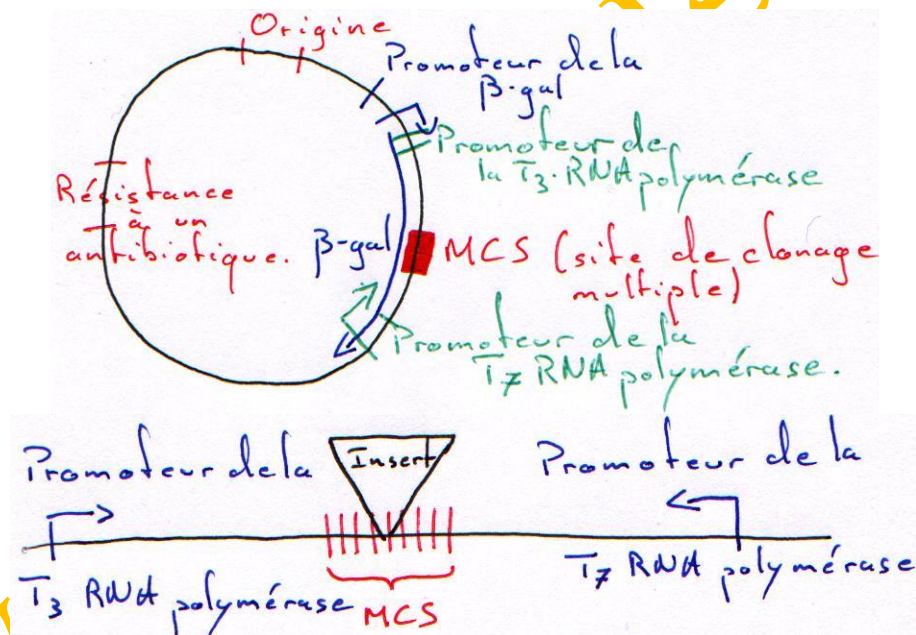 Origine
Promoteur de la
β-gal
Promoteur de
la T3 RNA polymérase
Résistance
à un
antibiotique.
β-gal
MCS (site de clonage
multiple)
Promoteur de la
T7 RNA polymérase.
Promoteur de la
Insert
Promoteur de la
T3 RNA polymérase
MCS
T7 RNA polymérase